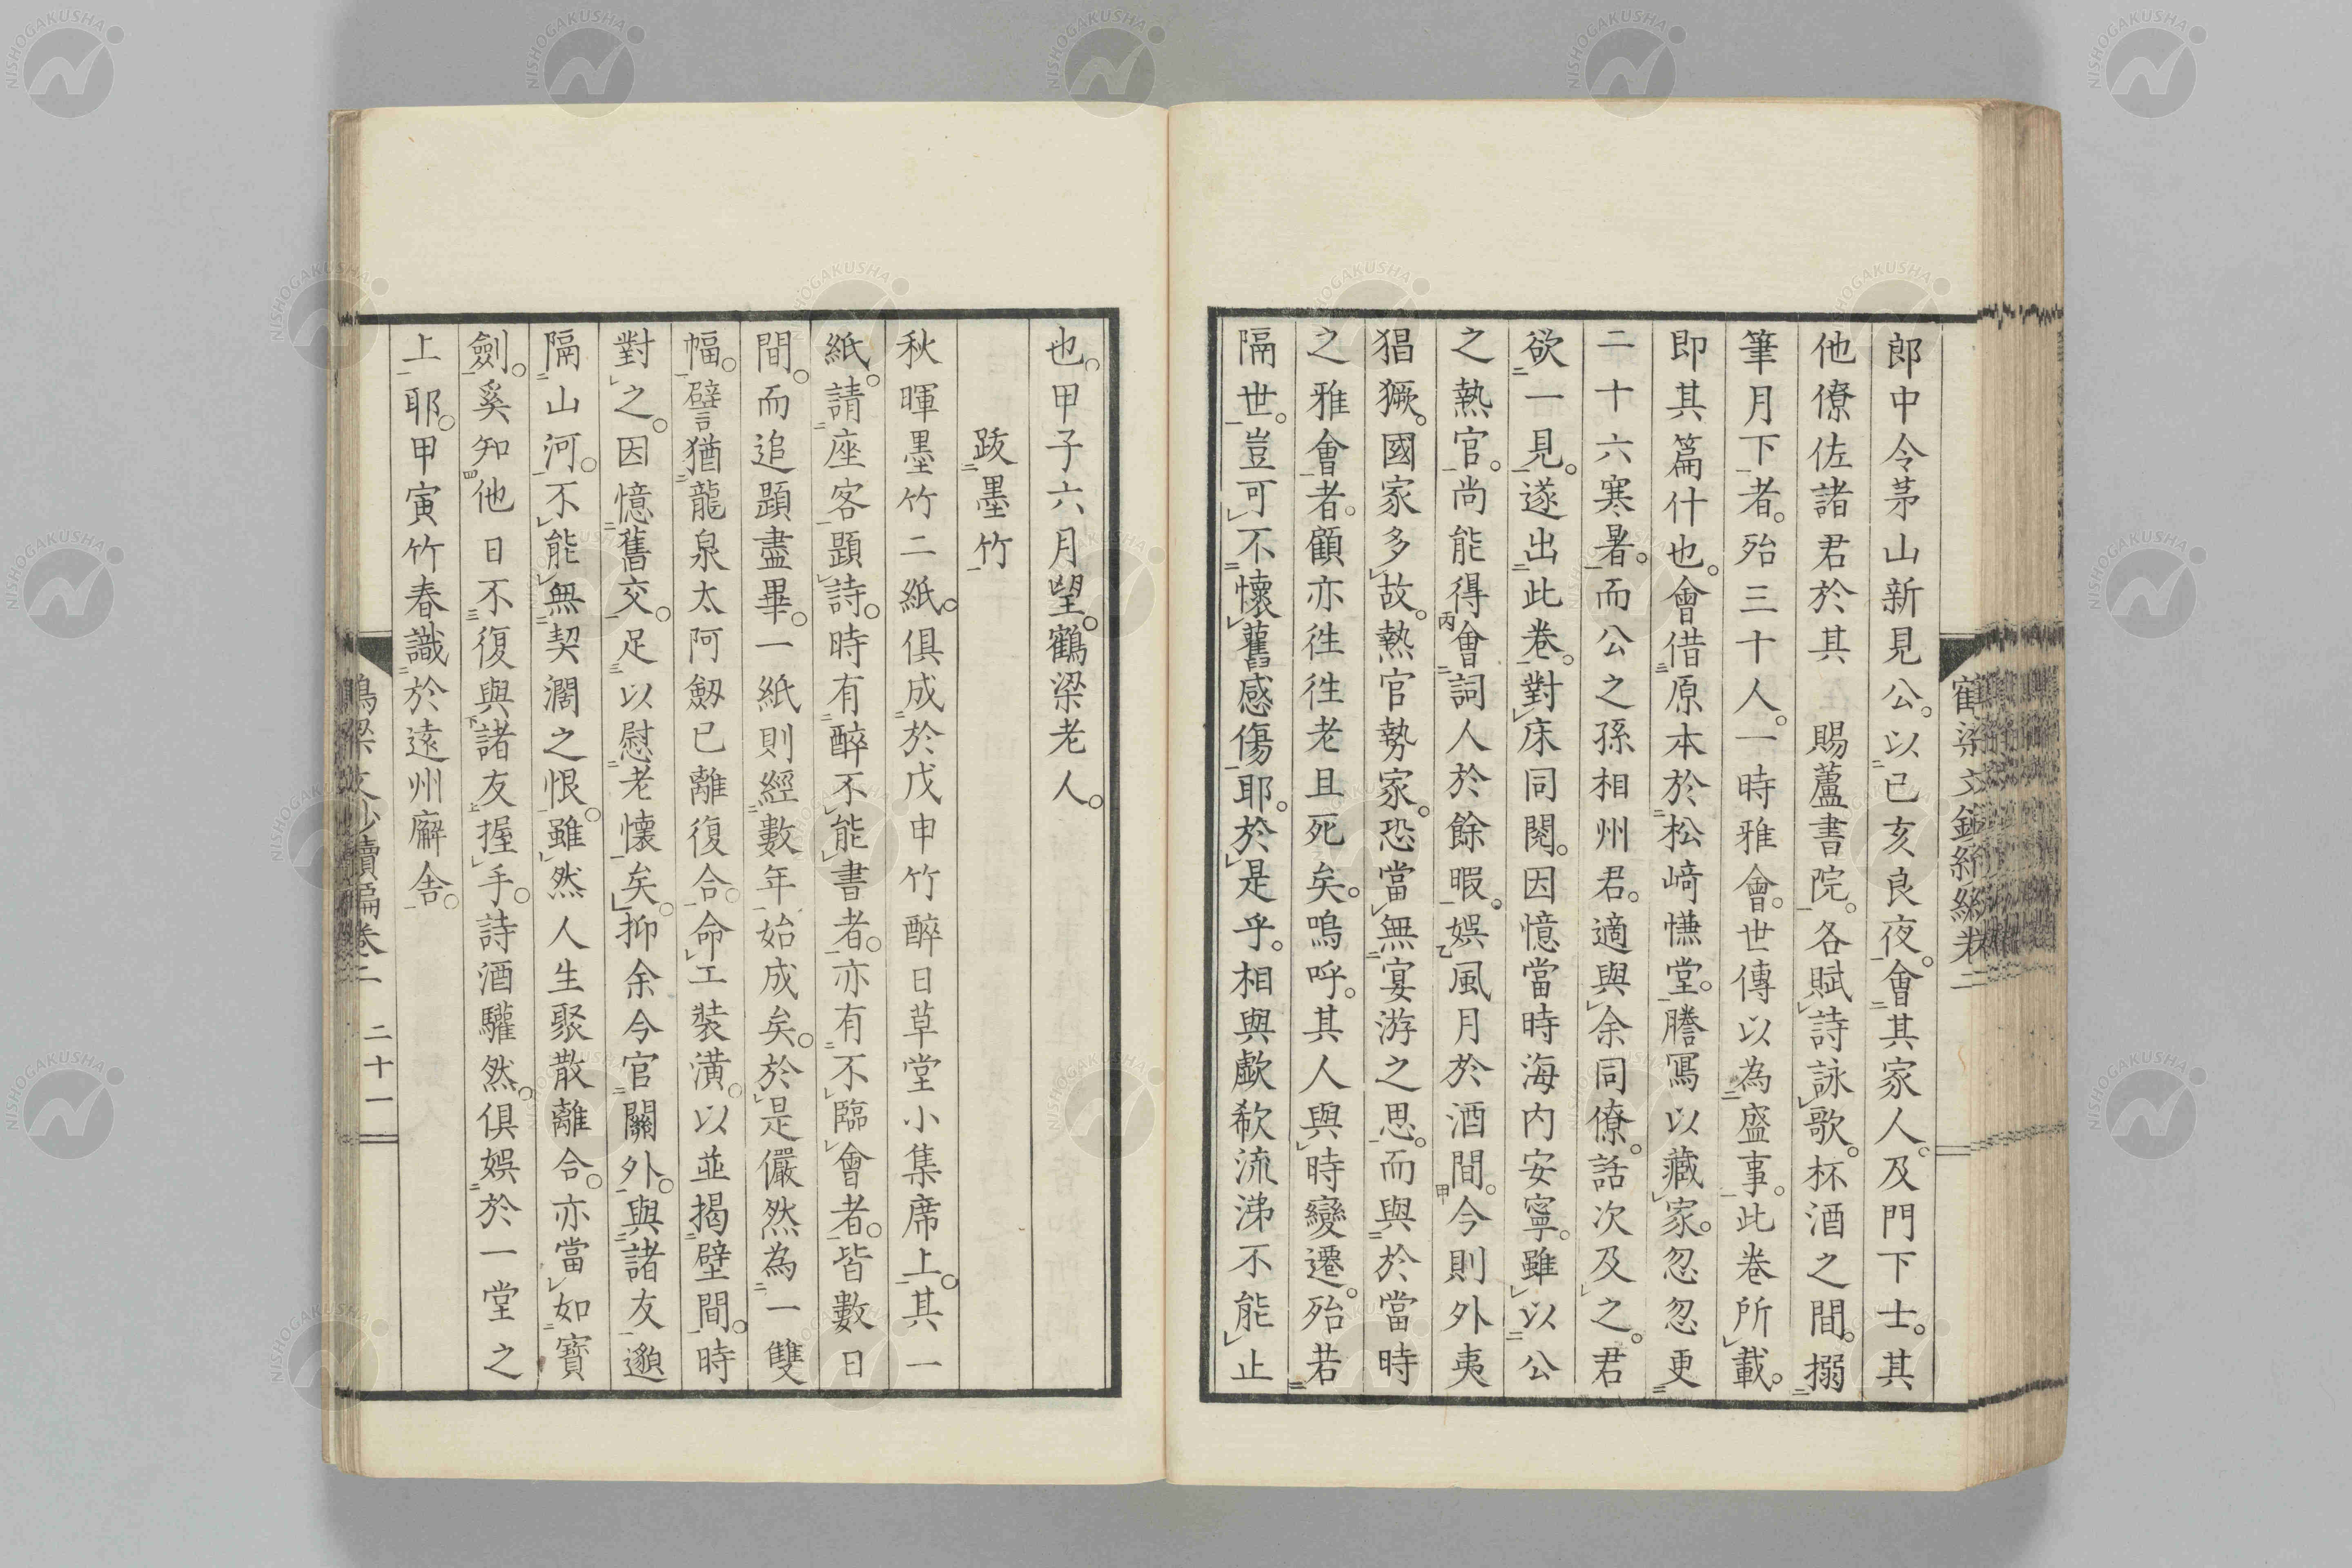 郎中令茅山新見公。以已亥良夜。會其家人。及門下士。其
他僚佐諸君於其　賜蘆書院。各賦詩詠歌。杯酒之間。搦
筆月下者。殆三十人。一時雅會。世傳以為盛事。此卷所載。
即其篇什也。會借原本於松﨑慊堂。謄寫以藏家。忽忽更
二十六寒暑。而公之孫相州君。適與余同僚。話次及之。君
欲一見。遂出此卷。對床同閱。因憶當時海内安寧。雖以公
之熱官。尚能得會詞人於餘暇。娯風月於酒間。今則外夷
猖獗。國家多故。熱官勢家。恐當無宴游之思。而與於當時
之雅會者。顧亦徃徃老且死矣。嗚呼。其人與時變遷。殆若
隔世。豈可不懷舊感傷耶。於是乎。相與歔欷流涕不能止
也。甲子六月望。鶴梁老人。
跋墨竹
秋暉墨竹二紙。俱成於戊申竹醉日草堂小集席上。其一
紙。請座客題詩。時有醉不能書者。亦有不臨會者。皆數日
間。而追題盡畢。一紙則經數年始成矣。於是儼然為一雙
幅。譬猶龍泉太阿劔已離復合。命工装潢。以並揭壁間。時
對之。因憶舊交。足以慰老懷矣。抑余今官關外。與諸友邈
隔山河。不能無契濶之恨。雖然人生聚散離合。亦當如寶
劍。奚知他日不復與諸友握手。詩酒驩然。俱娯於一堂之
上耶。甲寅竹春識於遠州廨舎。
二十一
NISHOGAKUSHA